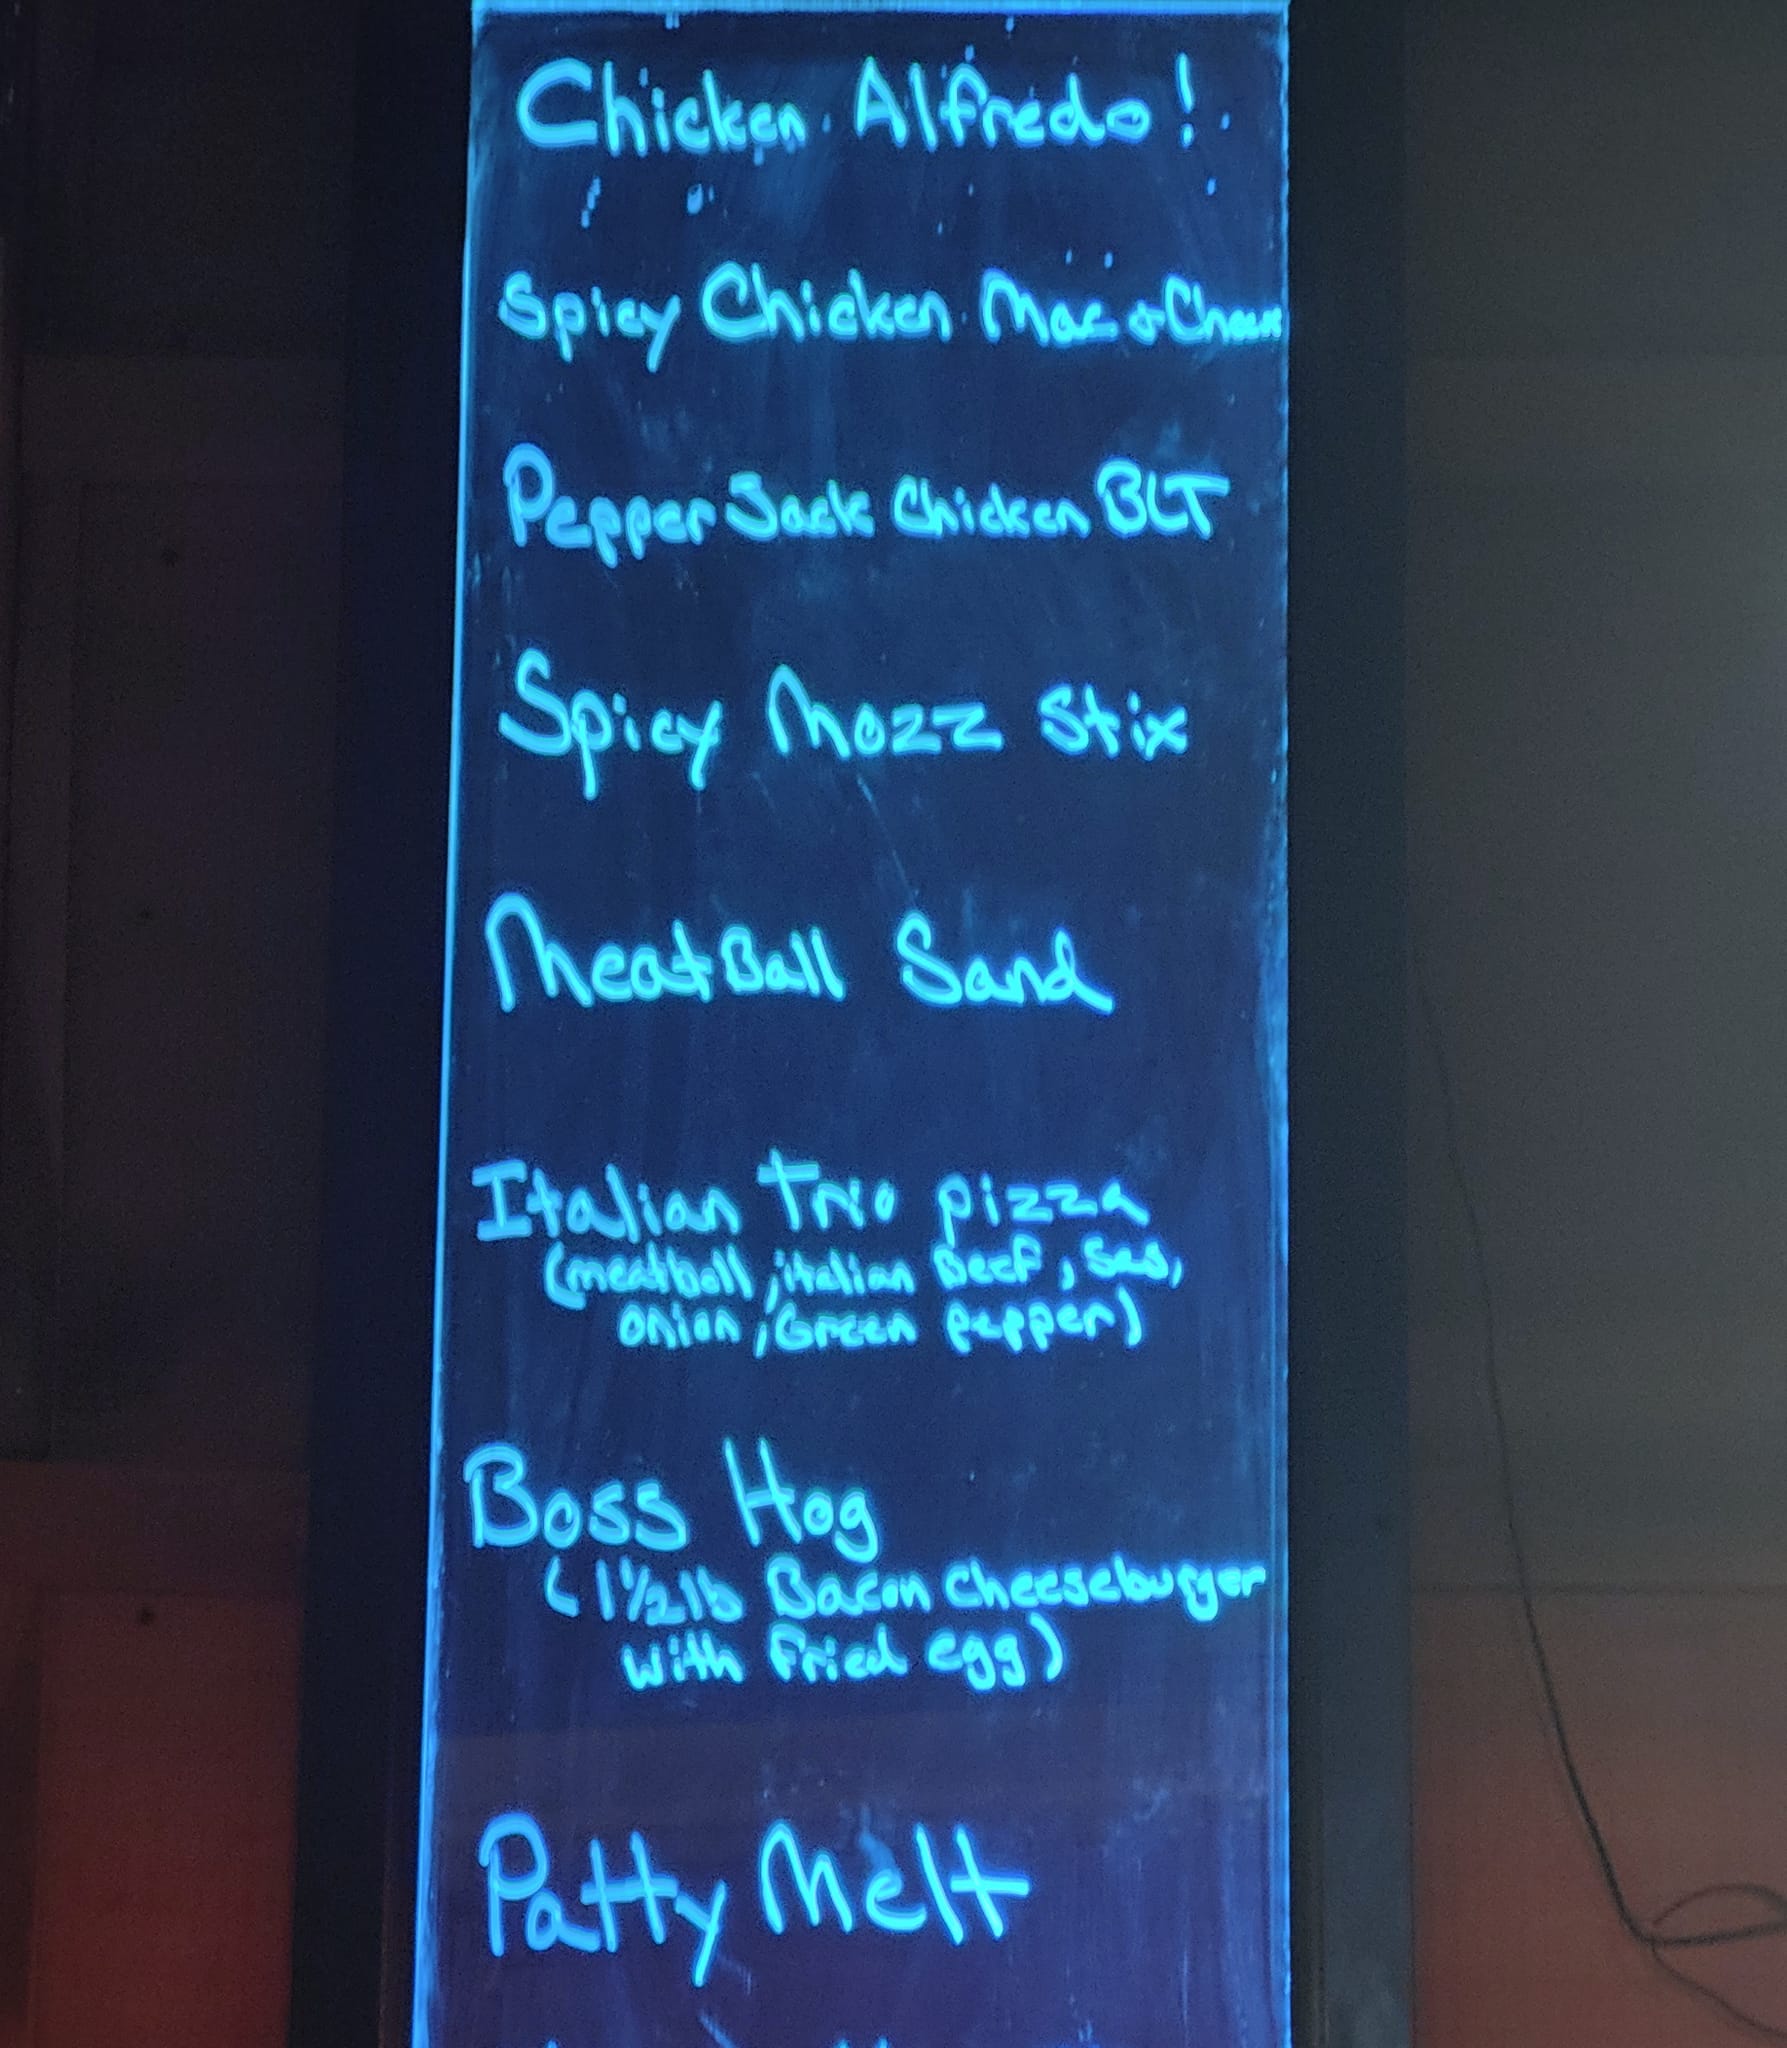 Chicken Alfredo!
Spicy Chicken Mac & Cheese
Pepper Jack Chicken BLT
Spicy Mozz Stix
MeatBall Sand
Italian Trio pizza
(meatball, italian Beef, Sas,
onion, Green pepper)
Boss Hog
(1 1/2 lb Bacon cheeseburger
with Fried egg)
Patty Melt